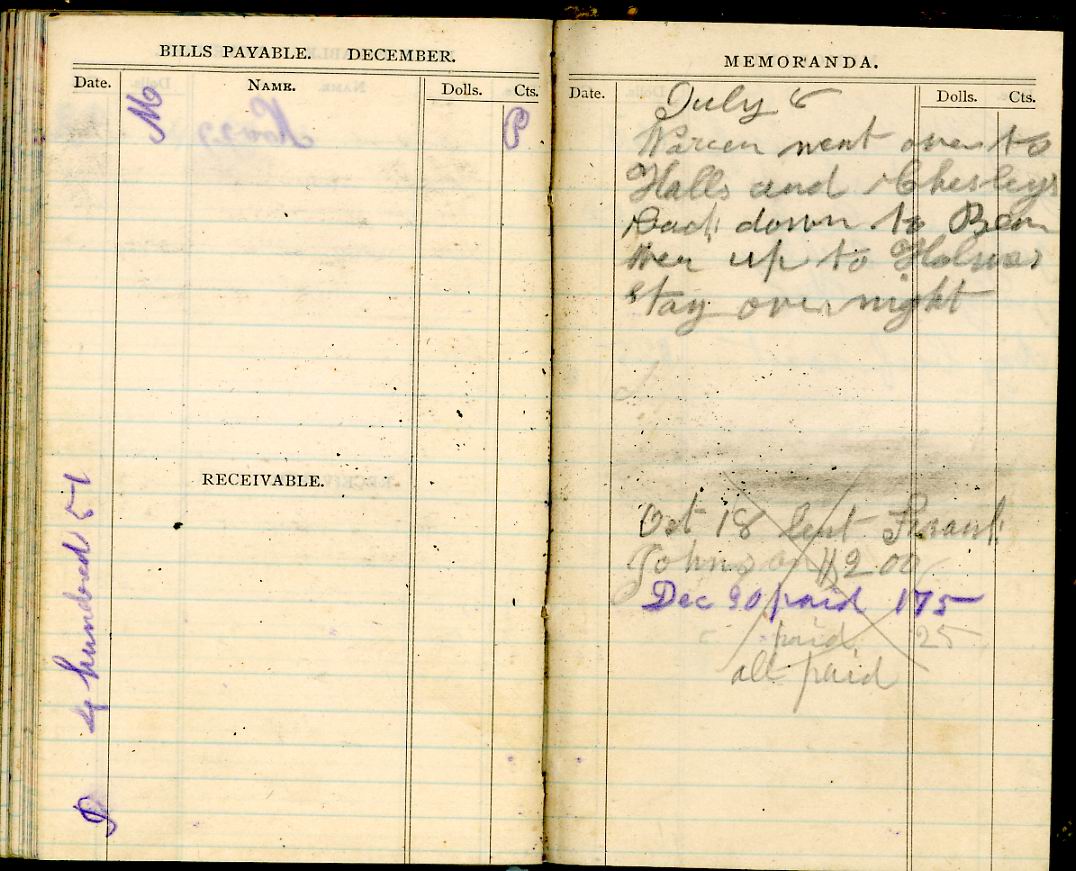 BILLS PAYABLE. DECEMBER.
Date. NAME. Dolls. Cts.
M
P
RECEIVABLE.
hundred 51
MEMORANDA.
Date. Dolls. Cts.
July 6
Warren went over to
Halls and Chesleys
Dad down to Bean
up to Holmes
stay over night
Oct 18 lent Frank
Johnson $2 00
Dec 20 paid 175
paid 25
all paid